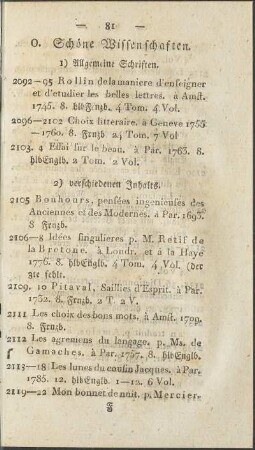 — 81 —
O. Schöne Wissenschaften.
1) Allgemeine Schriften.
2092—95 Rollin de la maniere d'enseigner
et d'etudier les belles lettres. à Amst.
1745. 8. hlbFrnzb. 4 Tom. 4 Vol.
2096—2102 Choix litteraire. à Geneve 1755
—1760. 8. Frnzb 24 Tom. 7 Vol
2103. 4 Essai sur le beau. à Par. 1763. 8.
hlbEnglb. 2 Tom. 2 Vol.
2) verschiedenen Inhalts.
2105 Bouhours, pensées ingenieuses des
Anciennes et des Modernes. à Par. 1693.
8 Frnzb.
2106—8 Idées singulieres p. M. Retif de
la Bretone. à Londr. et à la Haye
1776. 8. hlbEnglb. 4 Tom. 4 Vol. (der
3te fehlt.
2109. 10 Pitaval, Saillies d'Esprit. à Par.
1752. 8. Frnzb. 2 T. 2 V.
2111 Les choix des bons mots. à Amst. 1709.
8. Frnzb.
2112 Les agremens du langage. p. Ms. de
Gamaches. à Par. 1757. 8. hlbEnglb.
2113—18 Les lunes du cousin Jacques. à Par.
1785. 12. hlbEnglb. 1—12. 6 Vol.
2119—22 Mon bonnet de nuit. p. Mercier.